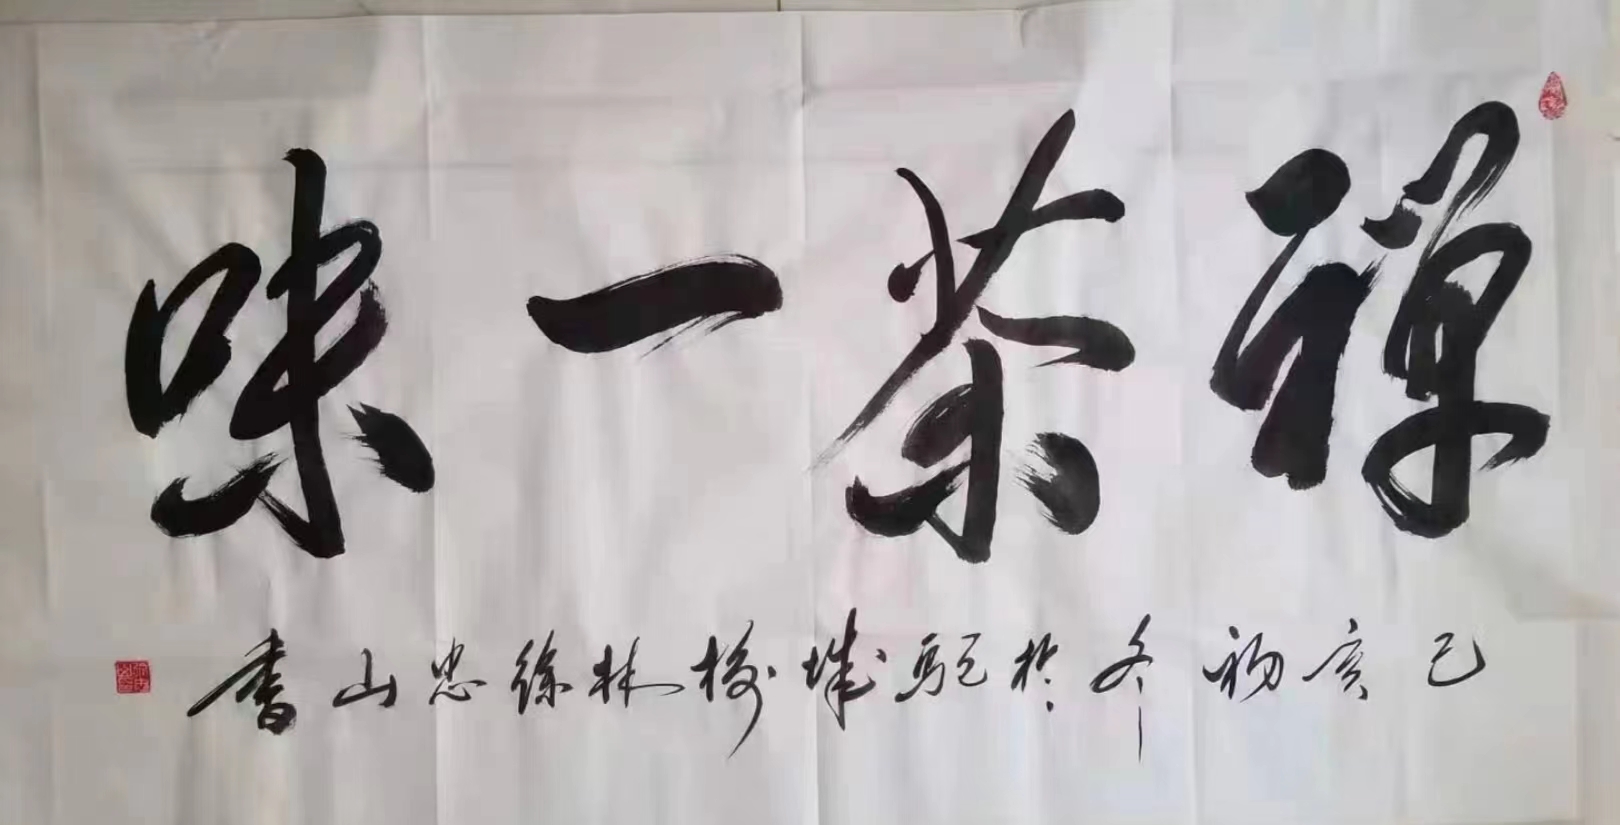 禅茶一味
己亥初冬於駝城榆林徐忠山書